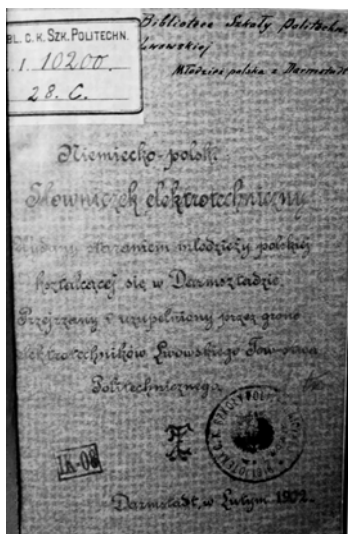 BL. C. K. SZK. POLITECHN.
I. 10200.
28. C.
Bibliotece Szkoły Politechn.
Lwowskiej
Młodzież polska z Darmstadt
Niemiecko-polski
Słowniczek elektrotechniczny
Wydany staraniem młodzieży polskiej
kształcącej się w Darmsztadzie.
Przejrzany i uzupełniony przez grono
elektrotechników Lwowskiego Towarzystwa
Politechnicznego.
IX-08
Darmstadt, w Lutym 1902.